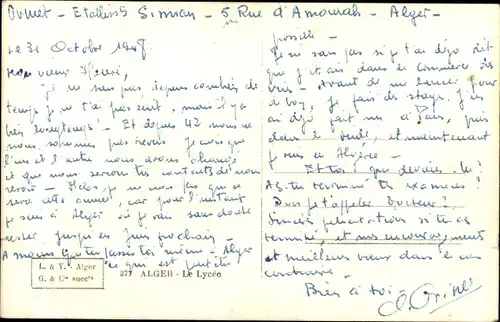 Ormet - Etablints Simian - 5 Rue d'Amourah - Alger -
Le 31 Octobre 1948
Mon vieux Henri,
Je ne sais pas depuis combien de
temps je ne t'ai pas écrit, mais il y a
très longtemps! - Et depuis 42 nous ne
nous sommes pas revus. Je crois que
l'un et l'autre nous avons changé
et que nous serions très contents de nous
revoir - Hélas, je ne crois pas que ce
sera cette année, car pour l'instant
je suis à Alger où je vais sans doute
rester jusqu'en juin prochain -
A moins que tu passes toi même à Alger
ce qui est peut être
L. & Y. - Alger
G. & Cie succrs
377 ALGER - Le Lycée
possible -
Je ne sais pas si je t'ai déjà dit
que j'étais dans le commerce des
vins - Avant de me lancer pour
de bon, je fais des stages. J'en
ai déjà fait un à Paris, puis
dans le , et maintenant
je suis en Algérie -
Et toi, que deviens-tu?
As-tu terminé tes examens?
Dois-je t'appeler Docteur?
Sincères félicitations si tu as
terminé, et mes encouragements
et meilleurs vœux dans le cas
contraire -
Bien à toi -